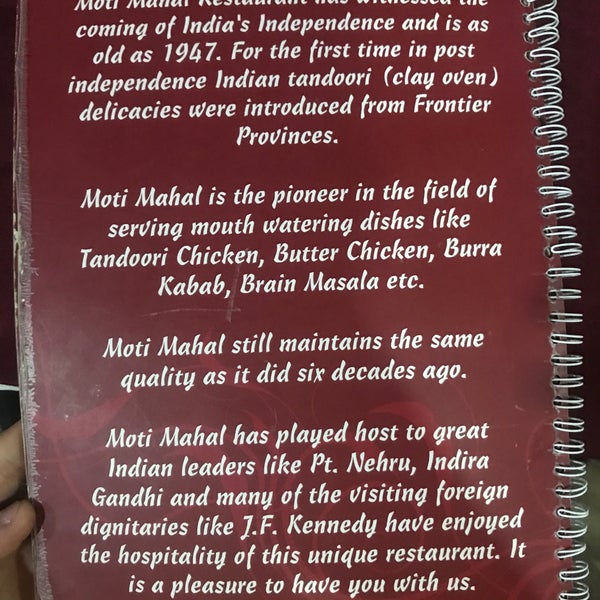 Moti Mahal Restaurant has witnessed the
coming of India's Independence and is as
old as 1947. For the first time in post
independence Indian tandoori (clay oven)
delicacies were introduced from Frontier
Provinces.
Moti Mahal is the pioneer in the field of
serving mouth watering dishes like
Tandoori Chicken, Butter Chicken, Burra
Kabab, Brain Masala etc.
Moti Mahal still maintains the same
quality as it did six decades ago.
Moti Mahal has played host to great
Indian leaders like Pt. Nehru, Indira
Gandhi and many of the visiting foreign
dignitaries like J.F. Kennedy have enjoyed
the hospitality of this unique restaurant. It
is a pleasure to have you with us.